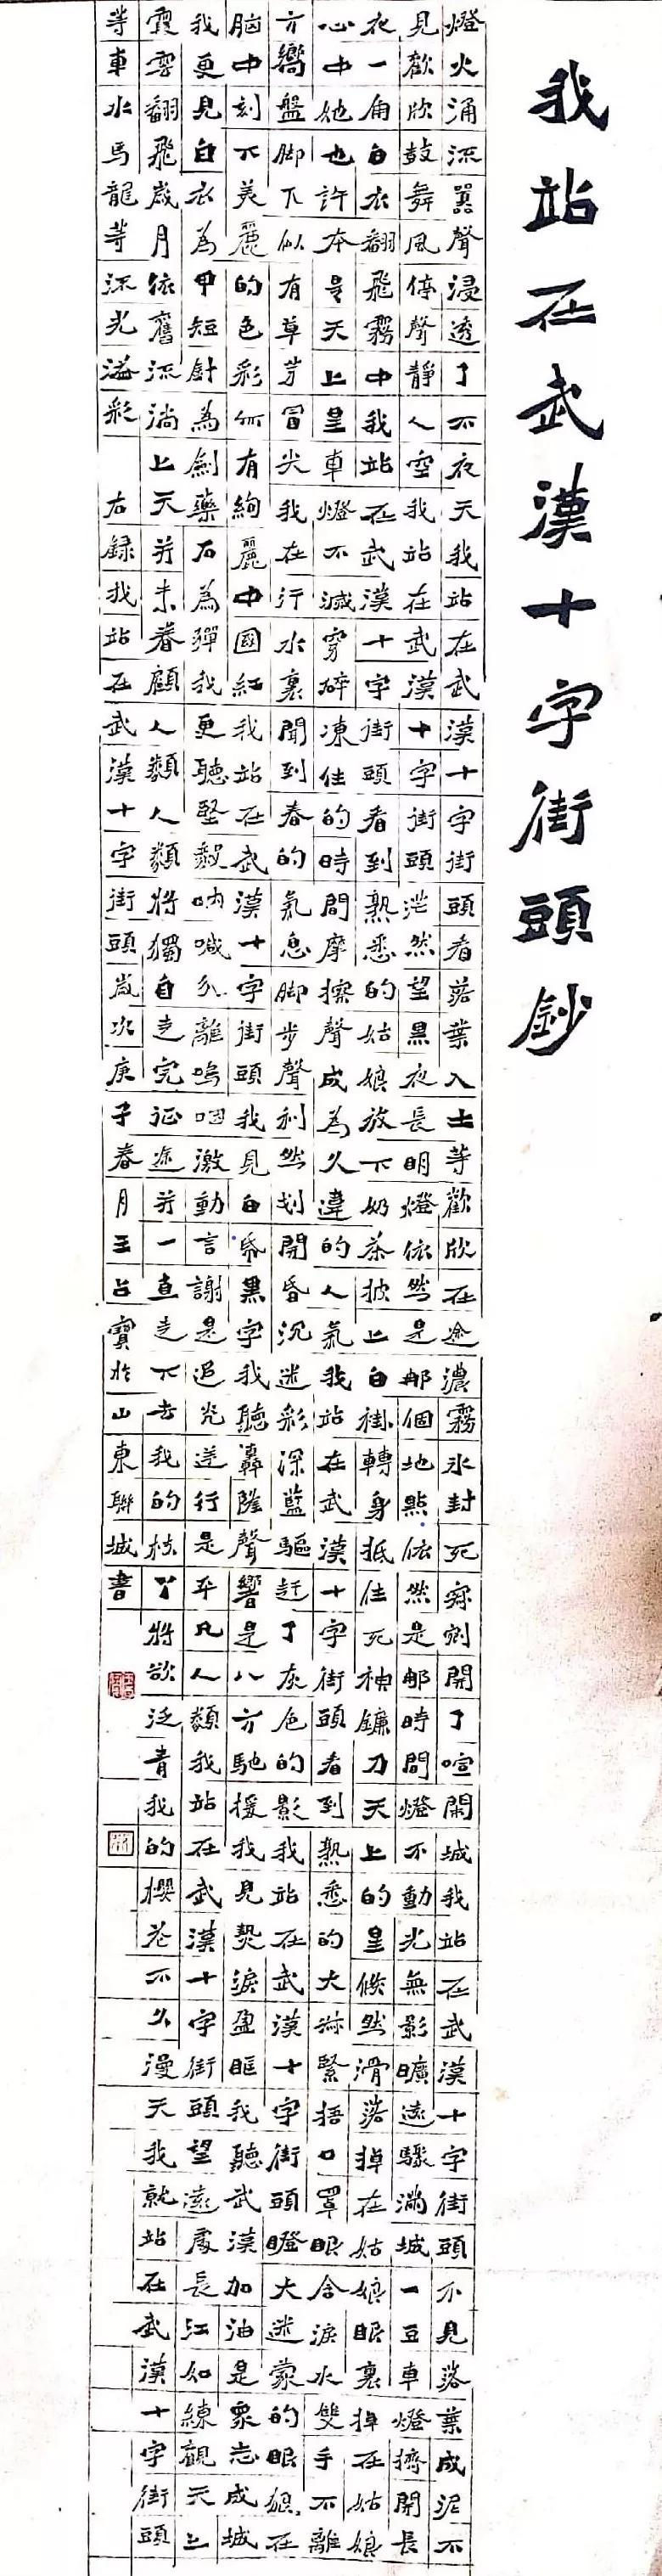 我站在武漢十字街頭鈔
燈火涌流囂聲浸透了不夜天我站在武漢十字街頭看落葉入土等歡欣在途濃霧冰封死寂開了喧鬧城我站在武漢十字街頭不見落葉成泥不
見歡欣鼓舞風停聲靜人空我站在武漢十字街頭茫然望黑夜長明燈依然是那個地點依然是那時間燈不動光無影曠遠驟滿城一豆車燈擠開長
衣一角白衣翻飛霧中我站在武漢十字街頭看到熟悉的姑娘放下奶茶披上白褂轉身抵住死神鐮刀天上的星倏然滑落掉在姑娘眼裏掉在姑娘
心中她也許本是天上星車燈不滅穿碎凍住的時間摩擦聲成為久違的人氣我站在武漢十字街頭看到熟悉的大叔緊捂口罩眼含淚水雙手不離
方嚮盤脚下似有草芽冒尖我在行水裏聞到春的氣息脚步聲利然划開昏沉迷彩深藍驅赶了灰色的影我站在武漢十字街頭瞪大迷蒙的眼想在
腦中刻下美麗的色彩所有絢麗中國紅我站在武漢十字街頭我見白紙黑字我聽轟隆聲響是八方馳援我見熱淚盈眶我聽武漢加油是衆志成城
我更見白衣為甲短針為劍藥石為彈我更聽堅毅吶喊分離嗚咽激動言謝是追光逆行是平凡人類我站在武漢十字街頭望遠處長江如練觀天上
霞雲翻飛歲月依舊流淌上天并未眷顧人類人類將獨自走完征途并一直走下去我的枝丫將欲泛青我的櫻花不久漫天我就站在武漢十字街頭
等車水馬龍等流光溢彩 右録我站在武漢十字街頭歲次庚子春月王占寶於山東聊城書